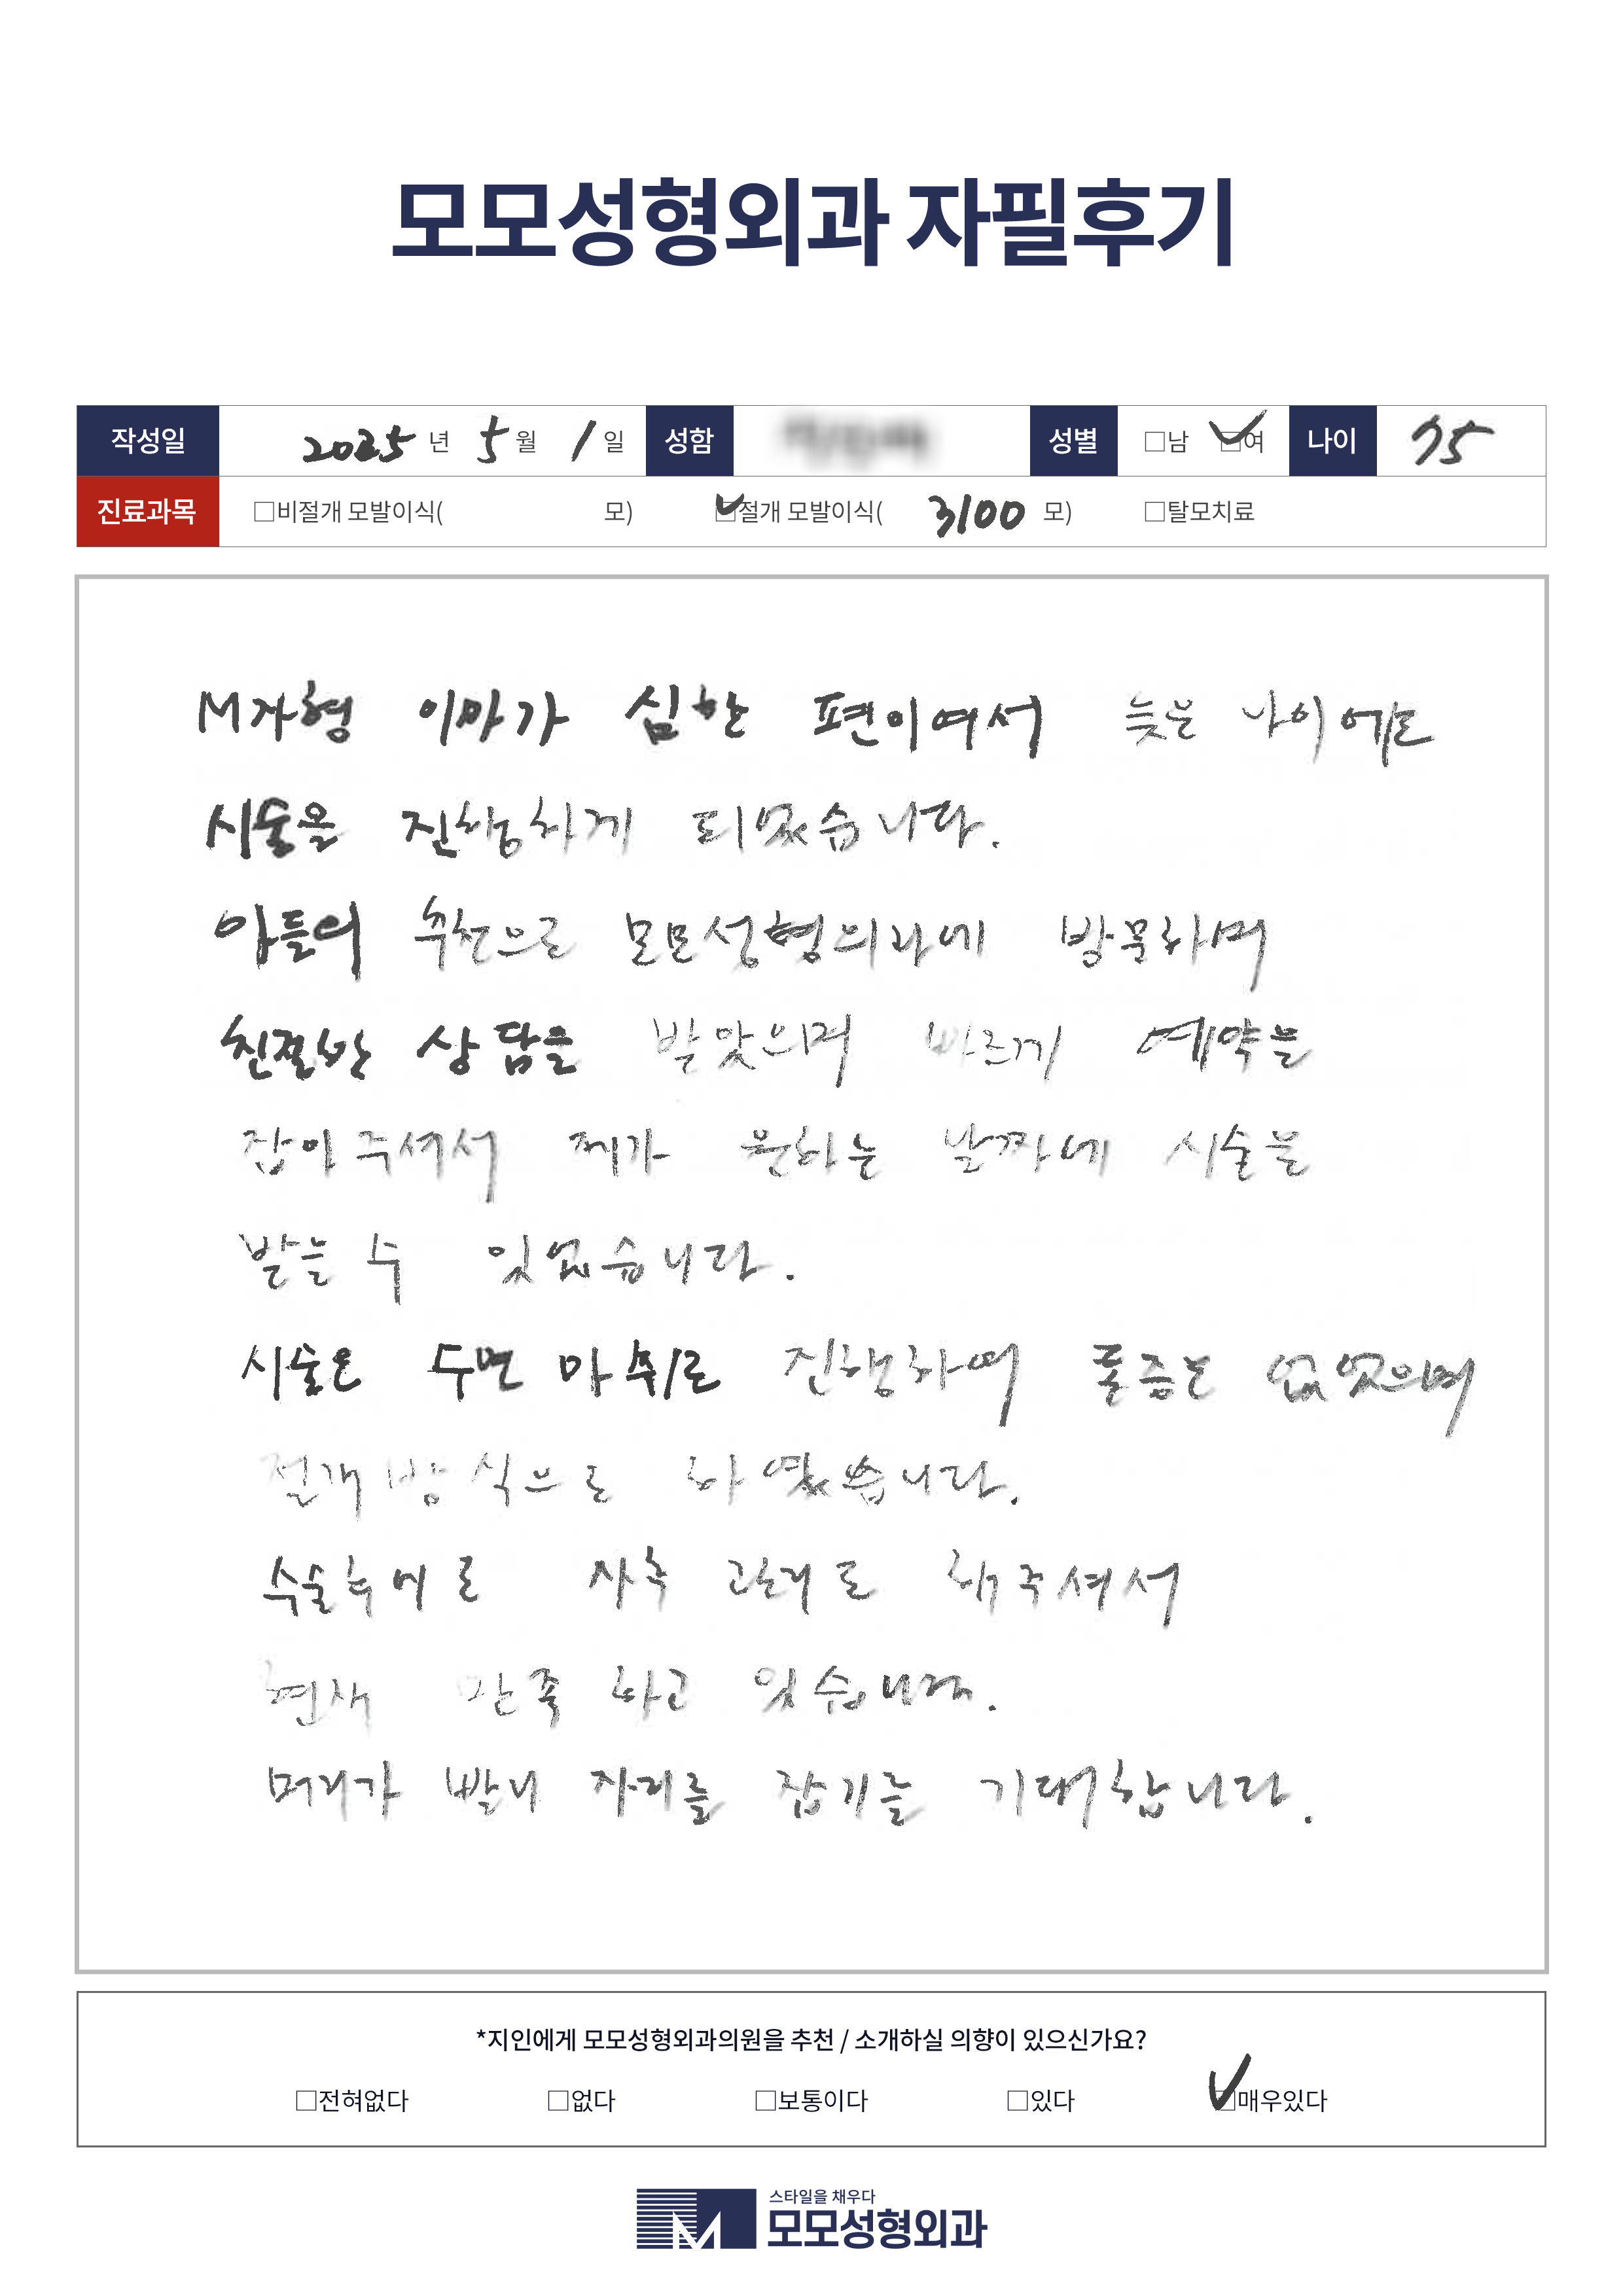 모모성형외과 자필후기
작성일 2025 년 5 월 1 일 성함 성별 □남 ☑여 나이 75
진료과목 □비절개 모발이식( 모) ☑절개 모발이식( 3100 모) □탈모치료
M자형 이마가 심한 편이여서 늦은 나이에도
시술을 진행하게 되었습니다.
아들의 추천으로 모모성형외과에 방문하며
친절한 상담을 받았으며 빠르게 예약을
잡아주셔서 제가 원하는 날짜에 시술을
받을 수 있었습니다.
시술은 수면 마취로 진행하여 통증은 없었으며
절개방식으로 하였습니다.
수술후에도 사후 관리도 해주셔서
현재 만족하고 있습니다.
머리가 빨리 자리를 잡기를 기대합니다.
*지인에게 모모성형외과의원을 추천 / 소개하실 의향이 있으신가요?
□전혀없다 □없다 □보통이다 □있다 ☑매우있다
스타일을 채우다
모모성형외과